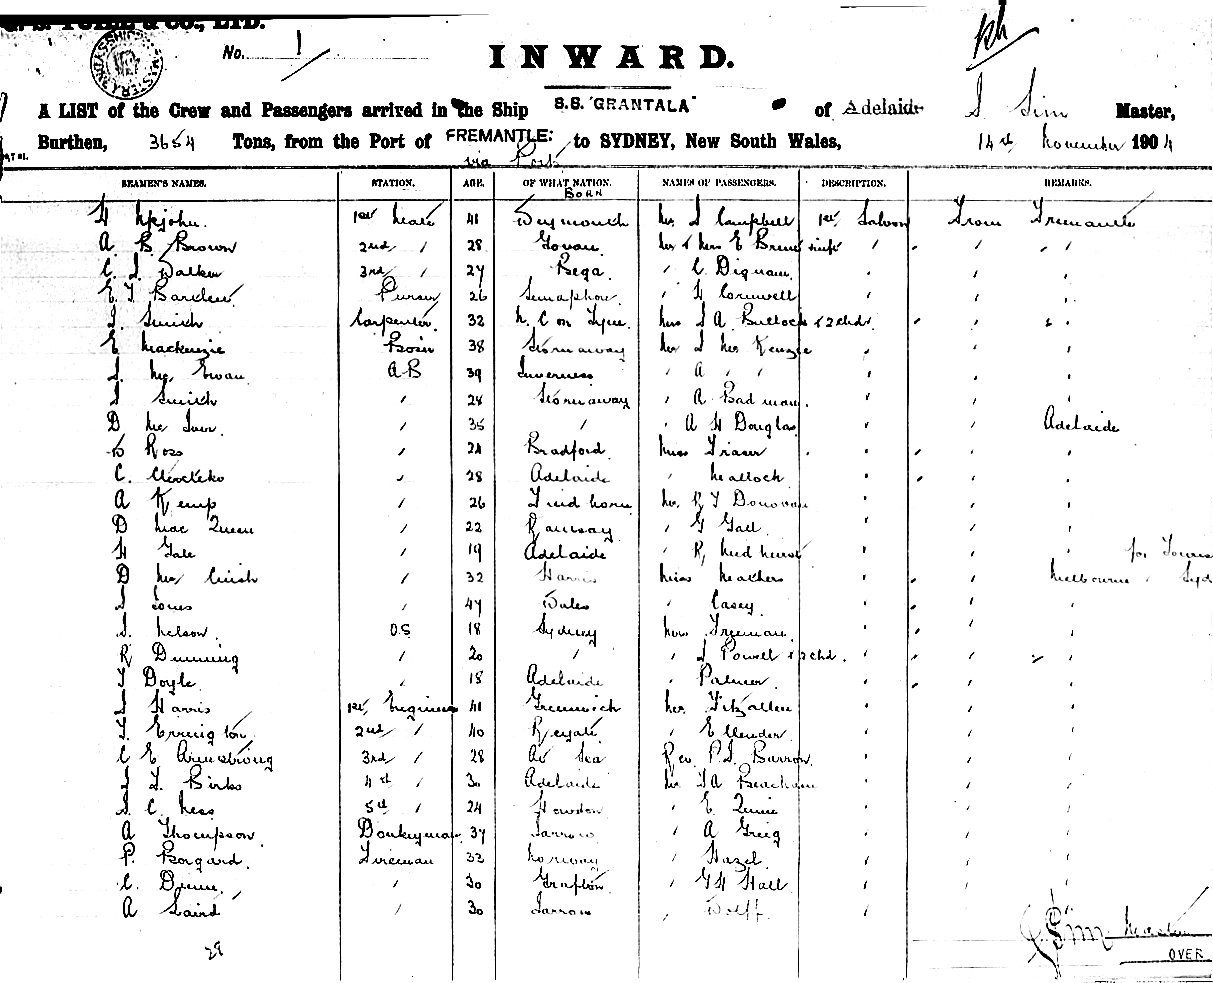 & CO., LTD.
No. 1
INWARD.
A LIST of the Crew and Passengers arrived in the Ship S.S. "GRANTALA" of Adelaide J Sim Master,
Burthen, 3654 Tons, from the Port of FREMANTLE: to SYDNEY, New South Wales, 14th November 1904
via Ports
SEAMEN'S NAMES. STATION. AGE. OF WHAT NATION. NAMES OF PASSENGERS. DESCRIPTION. REMARKS.
BORN
H Upjohn. 1st Mate 41 Weymouth Mr J Campbell 1st Saloon From Fremantle
A B Brown 2nd " 28 Govan Mr & Mrs E "
C J Walker 3rd " 27 Bega " C Dignam "
E T Purser 26 Semaphore " H Cornwell "
J. Smith Carpenter 32 N. C on Tyne Mrs J A Bullock & 2 chd "
E Mackenzie Bosn 38 Stornaway Mr J McKenzie "
J. McEwan AB 39 Inverness " A " "
J Smith " 28 Stornaway " A Badman "
D McIver " 35 " " A H Douglas " Adelaide
Ross " 24 Bradford Miss Fraser "
C. " 28 Adelaide " "
A Kemp " 26 Findhorn Mr R T Donovan "
D MacQueen " 22 Ramsay " G Gall "
H Gale " 19 Adelaide " R "
D " 32 Harris Miss Meathers " Melbourne
J Jones " 47 Wales " Casey "
J. Nelson. OS 18 Sydney Mrs Freeman "
R Dunning " 20 " " J Powell & 2 chd. "
T Doyle " 18 Adelaide " Palmer "
J Harris 1st Engineer 41 Greenwich Mr Fitzallen "
J. Errington 2nd " 40 Reigate " Ellender "
C E Armstrong 3rd " 28 At Sea Rev P. J. Burrow "
J. T. Birks 4th " 30 Adelaide Mr J A Beacham "
J. C. Ness 5th " 24 Howdon " E "
A Thompson Donkeyman 37 Jarrow " A Greig "
P. Borgard. Fireman 32 Norway " Hazel "
C. Dunn. " 30 Grafton " G H Hall "
A Laird " 30 Jarrow " Wolff "
J. Sim Master
28
OVER